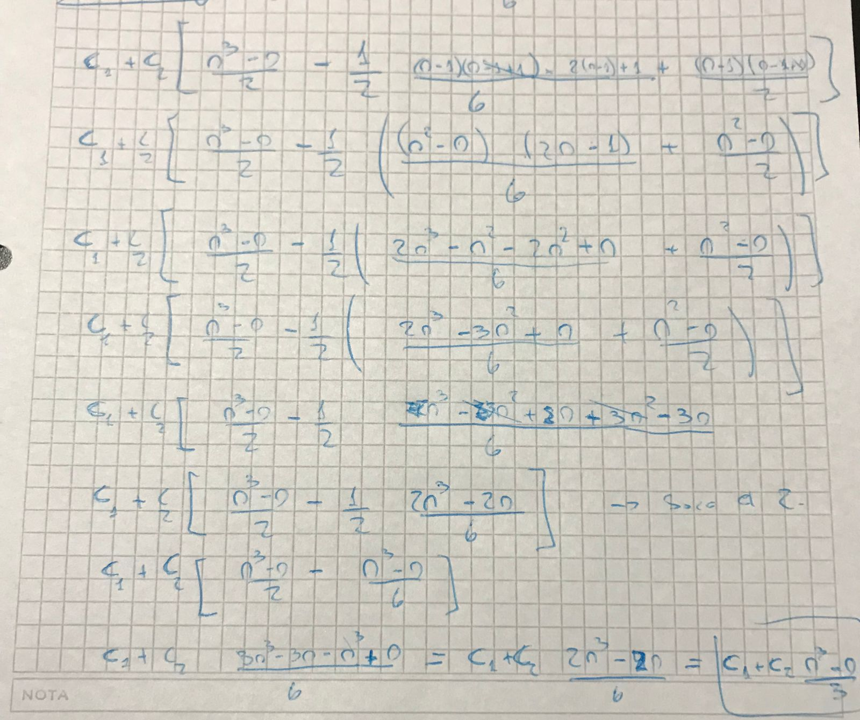 6
C₁ + C₂ [ (n³-n)/2 - 1/2 ((n-1)(n-1+1) · 2(n-1)+1)/6 + ((n-1)(n-1+1))/2 ]
C₁ + C₂ [ (n³-n)/2 - 1/2 ( ((n²-n) (2n-1))/6 + (n²-n)/2 ) ]
C₁ + C₂ [ (n³-n)/2 - 1/2 ( (2n³ - n² - 2n² + n)/6 + (n²-n)/2 ) ]
C₁ + C₂ [ (n³-n)/2 - 1/2 ( (2n³ - 3n² + n)/6 + (n²-n)/2 ) ]
C₁ + C₂ [ (n³-n)/2 - 1/2 (2n³ - 3n² + n + 3n² - 3n)/6
C₁ + C₂ [ (n³-n)/2 - 1/2 (2n³ - 2n)/6 ] → Saco a 2.
C₁ + C₂ [ (n³-n)/2 - (n³-n)/6 ]
C₁ + C₂ (3n³-3n-n³+n)/6 = C₁+C₂ (2n³-2n)/6 = C₁+C₂ (n³-n)/3
NOTA